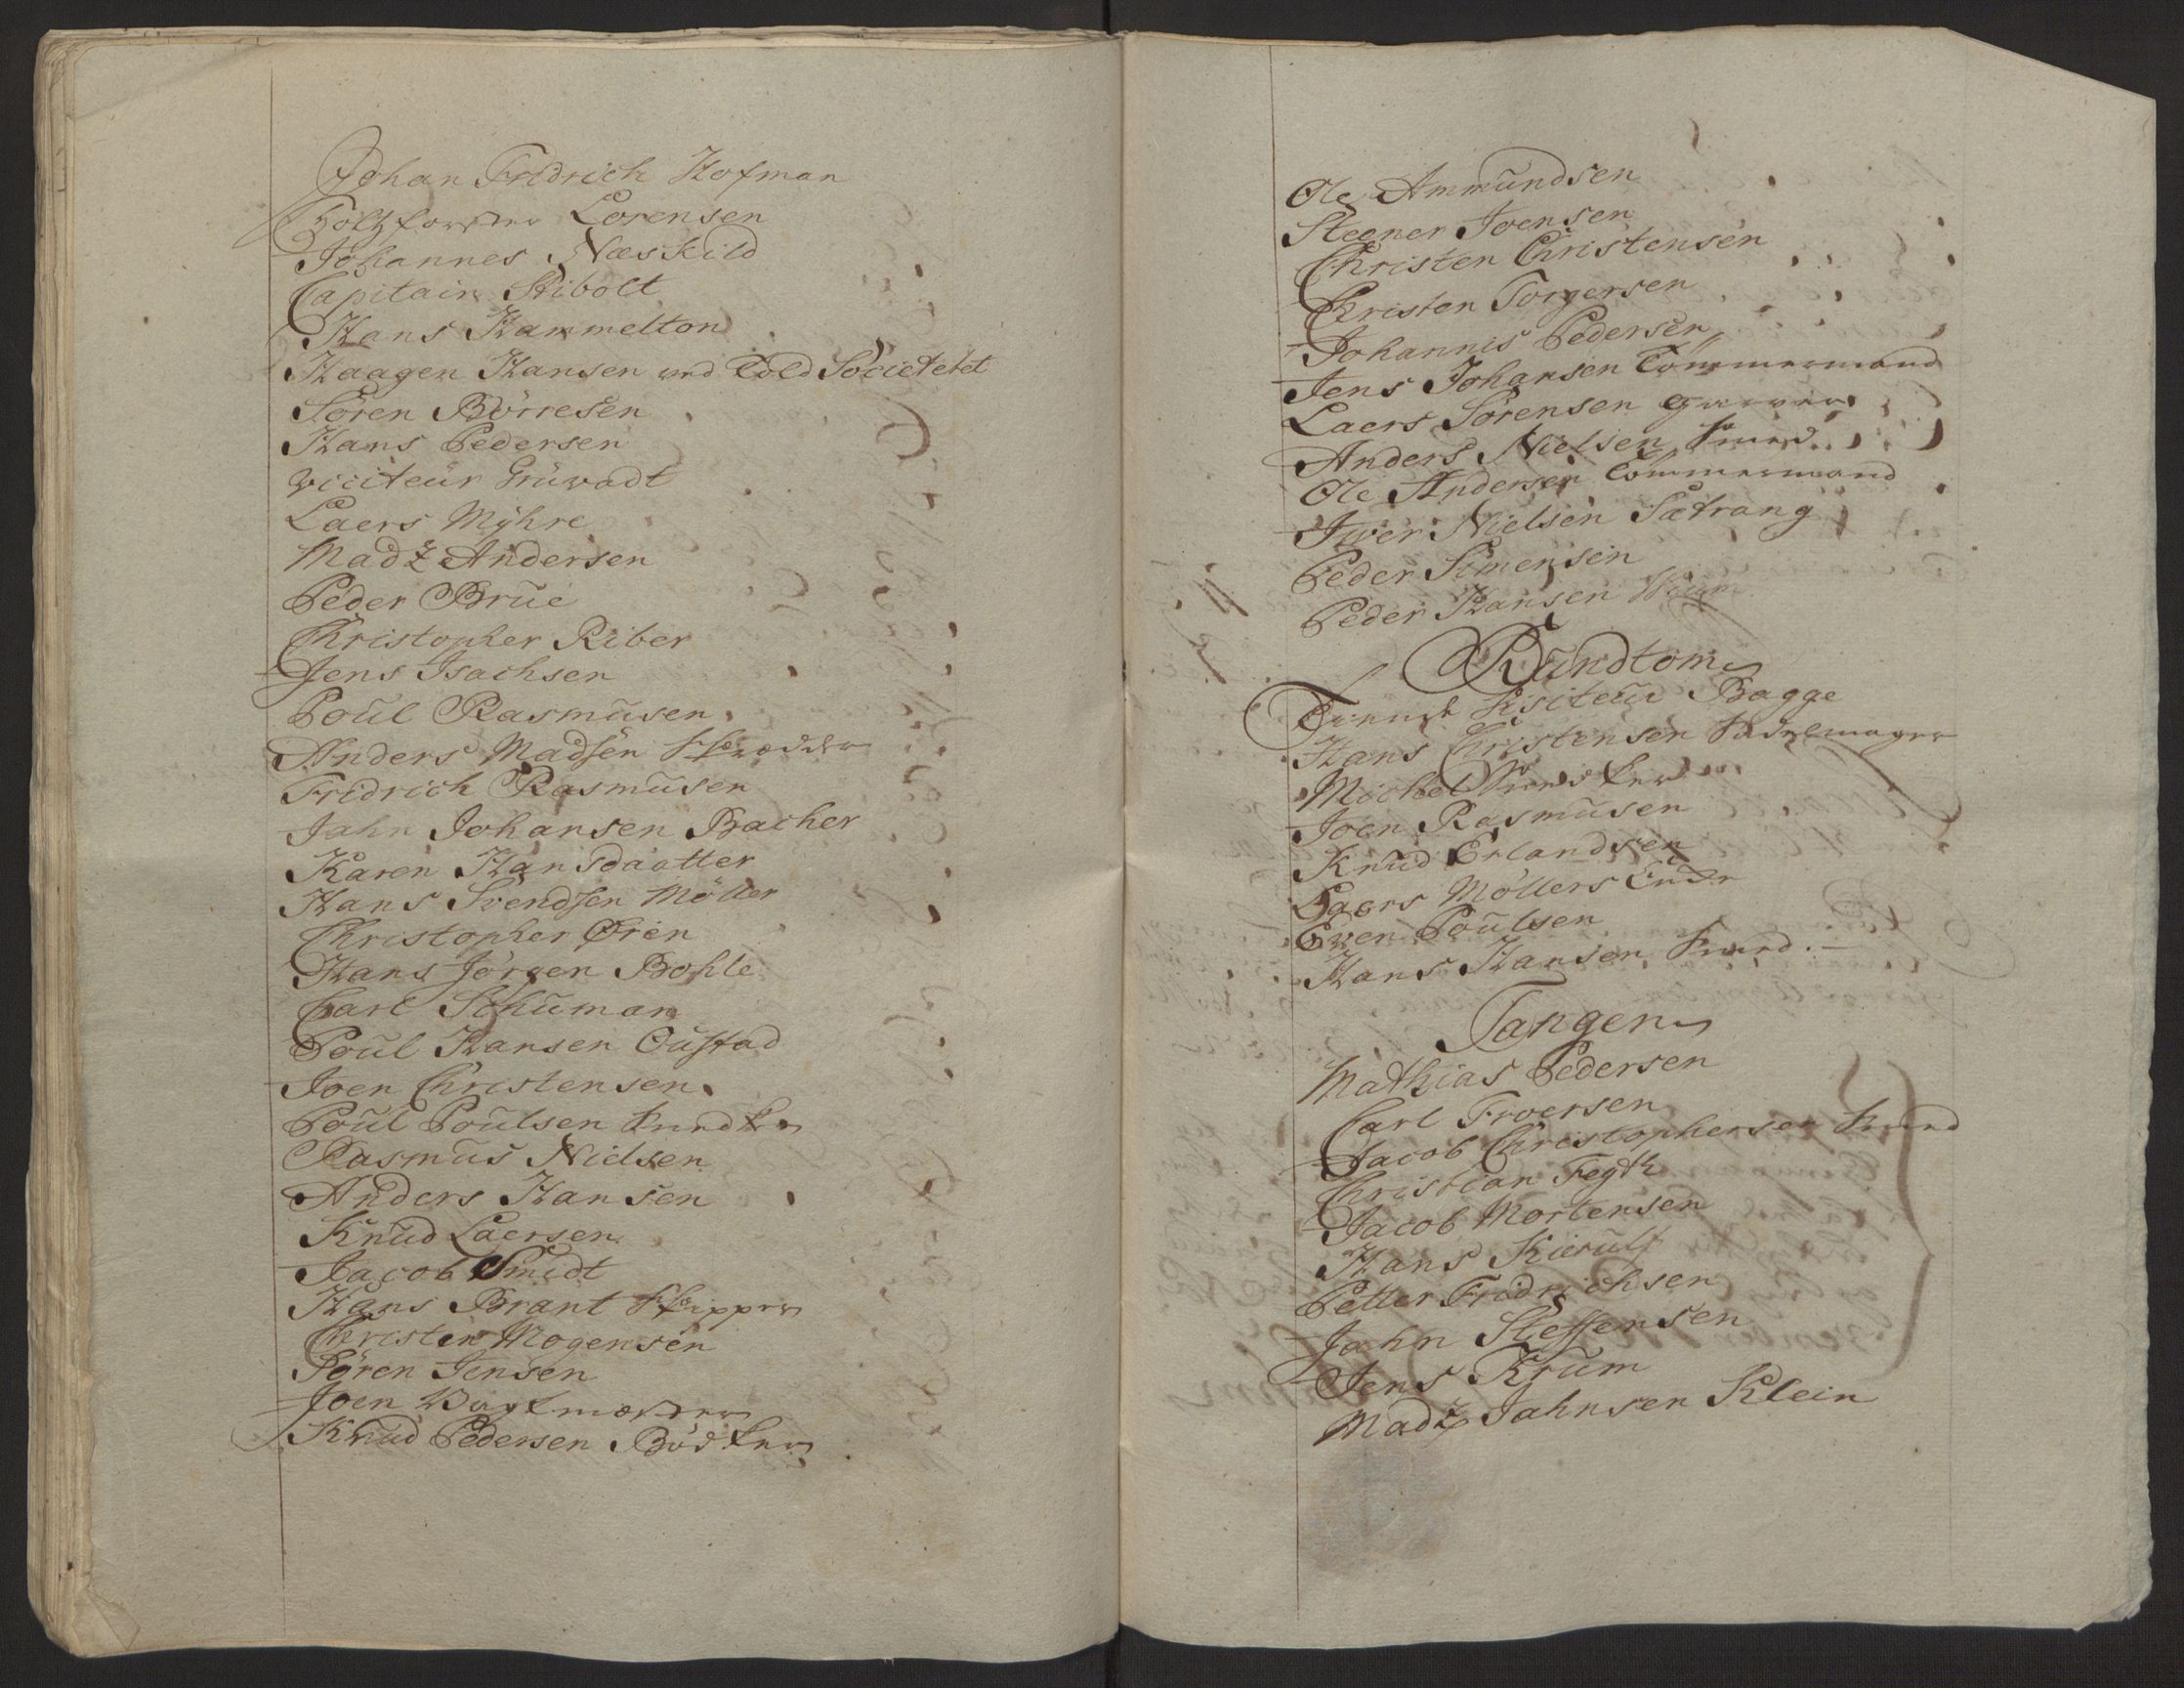 Johan Fridrich Hofman
Holtzforster Lorensen
Johannes Næskild
Capitain Stibolt
Hans Hammelton
Haagen Hansen ved Told Societetet
Sören Börresen
Hans Pedersen
Viciteur Grüvadt
Laers Mÿhre
Madz Andersen
Peder Brüe
Christopher Riber
Jens Isachsen
Poül Rasmüsen
Anders Madsen Skrædder
Fridrich Rasmüsen
Jahn Johansen Bacher
Karen Hansdaatter
Hans Svendsen Möller
Christopher Ørien
Hans Jörgen Bohle
Carl Schuman
Poül Hansen Oustad
Joen Christensen
Poül Poülsen Snedker
Rasmüs Nielsen
Anders Hansen
Knüd Laersen
Jacob Smidt
Hans Brant Skipper
Christen Mogensen
Sören Jensen
Joen Vagtmester
Knüd Pedersen Bödker
Ole Ammündsen
Steener Joensen
Christen Christensen
Christen Torgersen
Johannis Pedersen
Jens Johansen Tömmermand
Laers Sörensen Garver
Anders Nielsen Smed
Ole Andersen Tömmermand
Iver Nielsen Sætrang
Peder Simensen
Peder Hansen Wiim
Bundtom
Visiteur Bagge
Hans Christensen Sadelmager
Michel Snedker
Joen Rasmüsen
Knüd Erlandsen
Laers Möllers Encke
Even Poülsen
Hans Hansen Smed
Tangen
Mathias Pedersen
Carl Froersen
Jacob Christophersen Smed
Christian Fegth
Jacob Mortensen
Hans Kierulf
Petter Fridrichsen
Jahn Steffensen
Jens Krüm
Madz Jahnsen Klein